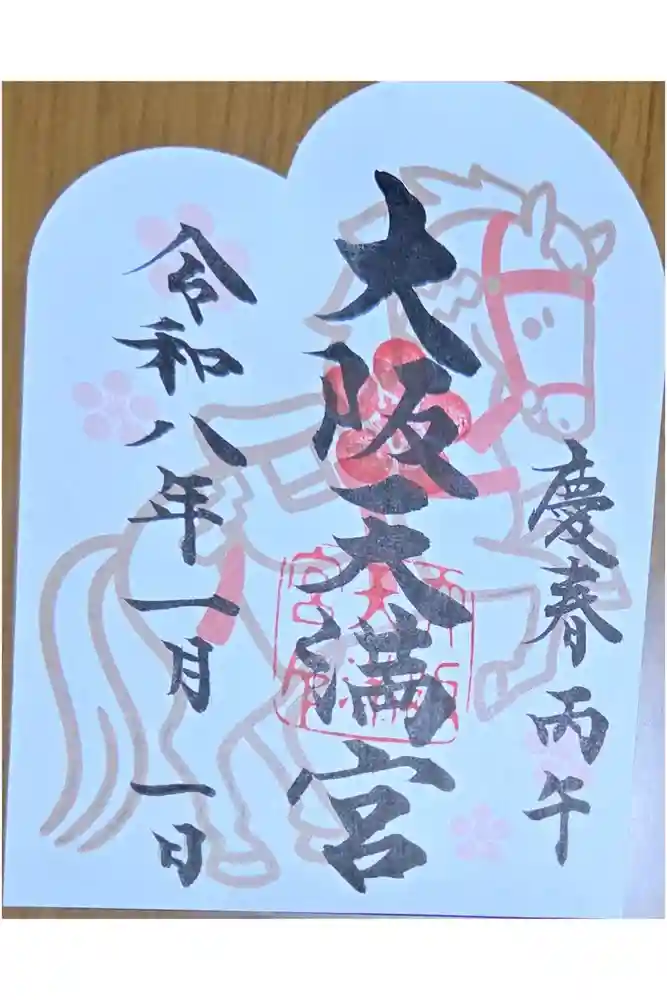 慶春 丙午
大阪天満宮
令和八年一月一日